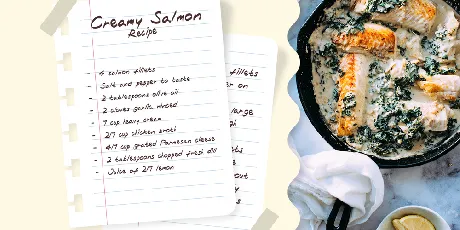 Creamy Salmon
Recipe
- 4 salmon fillets
- Salt and pepper to taste
- 2 tablespoons olive oil
- 2 cloves garlic, minced
- 1 cup heavy cream
- 2/7 cup chicken broth
- 4/7 cup grated Parmesan cheese
- 2 tablespoons chopped fresh dill
- Juice of 2/7 lemon
fillets
er on
large
out